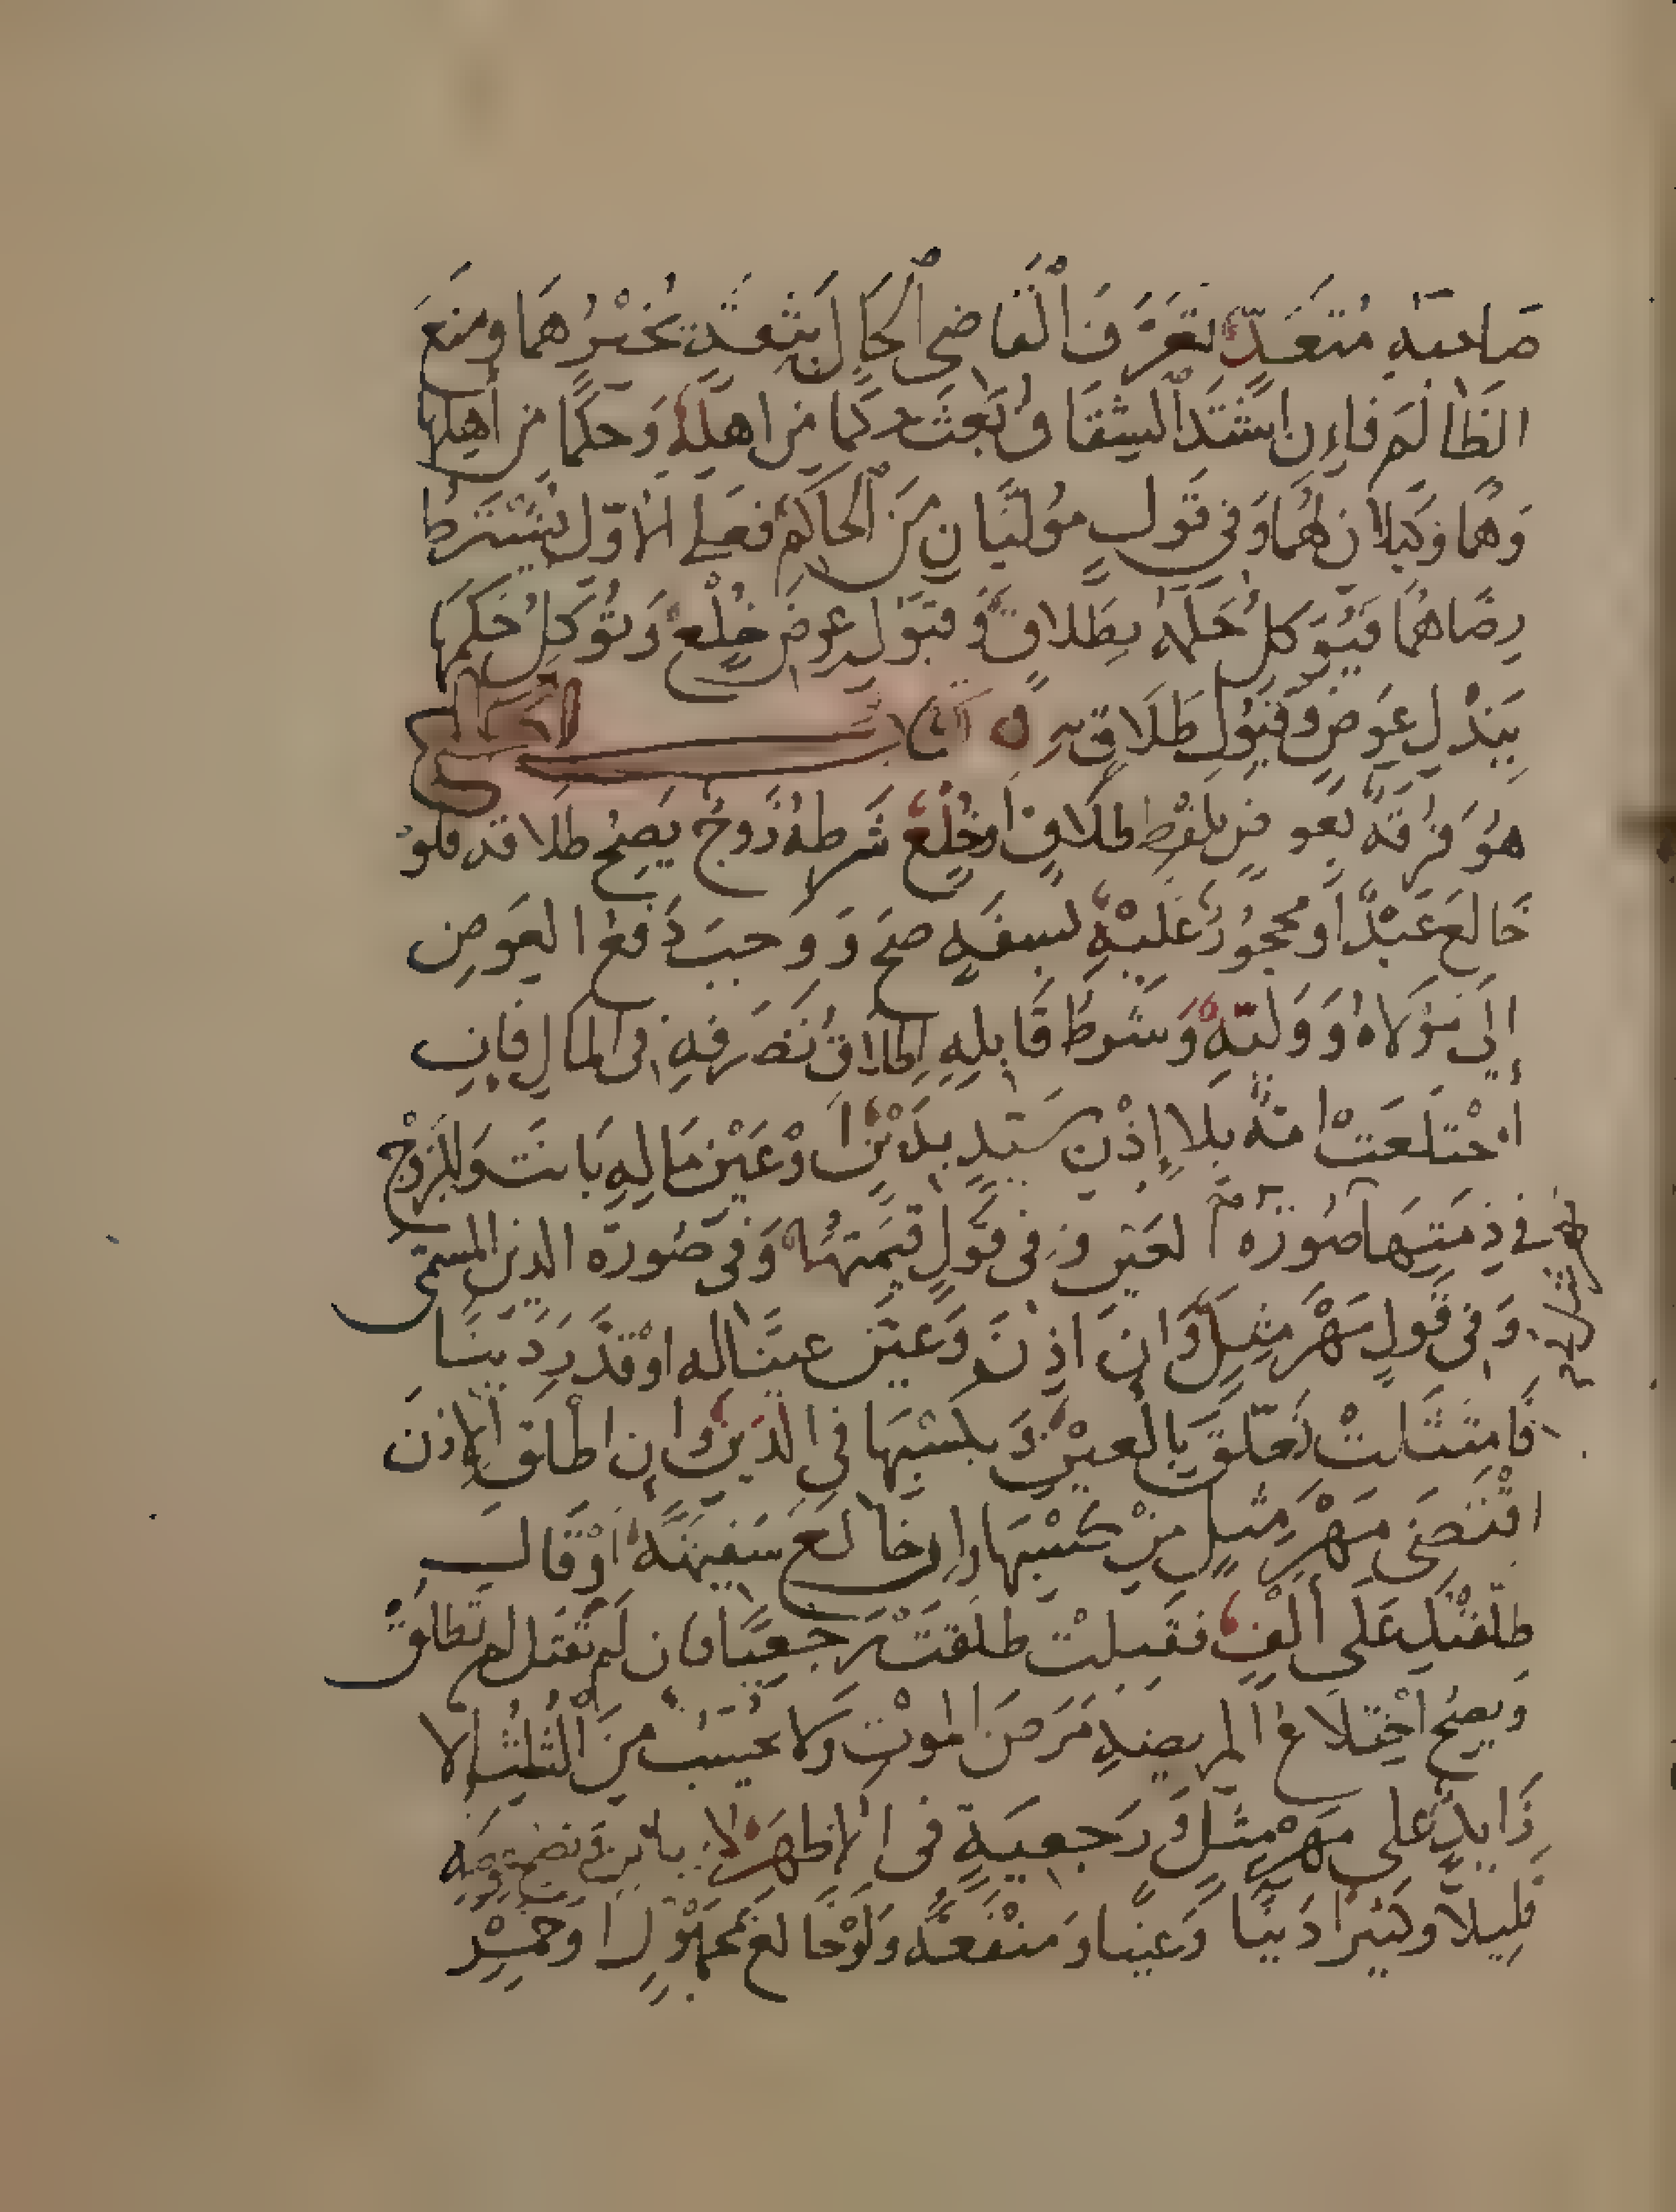 صاحبه متعد تعرف القاضي الحال بثقة يخبرهما ومنع
الظالم فإن اشتد الشقاق بعث حكما من اهله وحكما من اهلها
وهما وكيلان لهما وفي قول موليان من الحاكم فعلى الاول يشترط
رضاهما فيوكل حكمه بطلاق وقبول عوض خلع وتوكل حكمها
ببذل عوض وقبول طلاق به كتاب الخلع
هو فرقة بعوض بلفظ طلاق او خلع شرطه زوج يصح طلاقه فلو
خالع عبد او محجور عليه بسفه صح ووجب دفع العوض
إلى مولاه ووليه وشرط قابله اطلاق تصرفه في المال فإن
أختلعت امة بلا إذن سيد بدين او عين ماله بانت وللزوج
في ذمتها مهر مثل في صورة العين وفي قول قيمتها وفي صورة الدين المسمى
وفي قول مهر مثل وان اذن وعين عينا له او قدر دينا
فامتثلت تعلق بالعين وبكسبها في الدين وان اطلق الإذن
اقتضى مهر مثل من كسبها وإن خالع سفيهة او قال
طلقتك على ألف فقبلت طلقت رجعيا فان لم تقبل لم تطلق
ويصح اختلاع المريضة مرض الموت ولا يحسب من الثلث إلا
زايد على مهر مثل ورجعية في الاظهر لا باين ويصح عوضه
قليلا وكثيرا دينا وعينا ومنفعة ولو خالع بمجهول او خمر